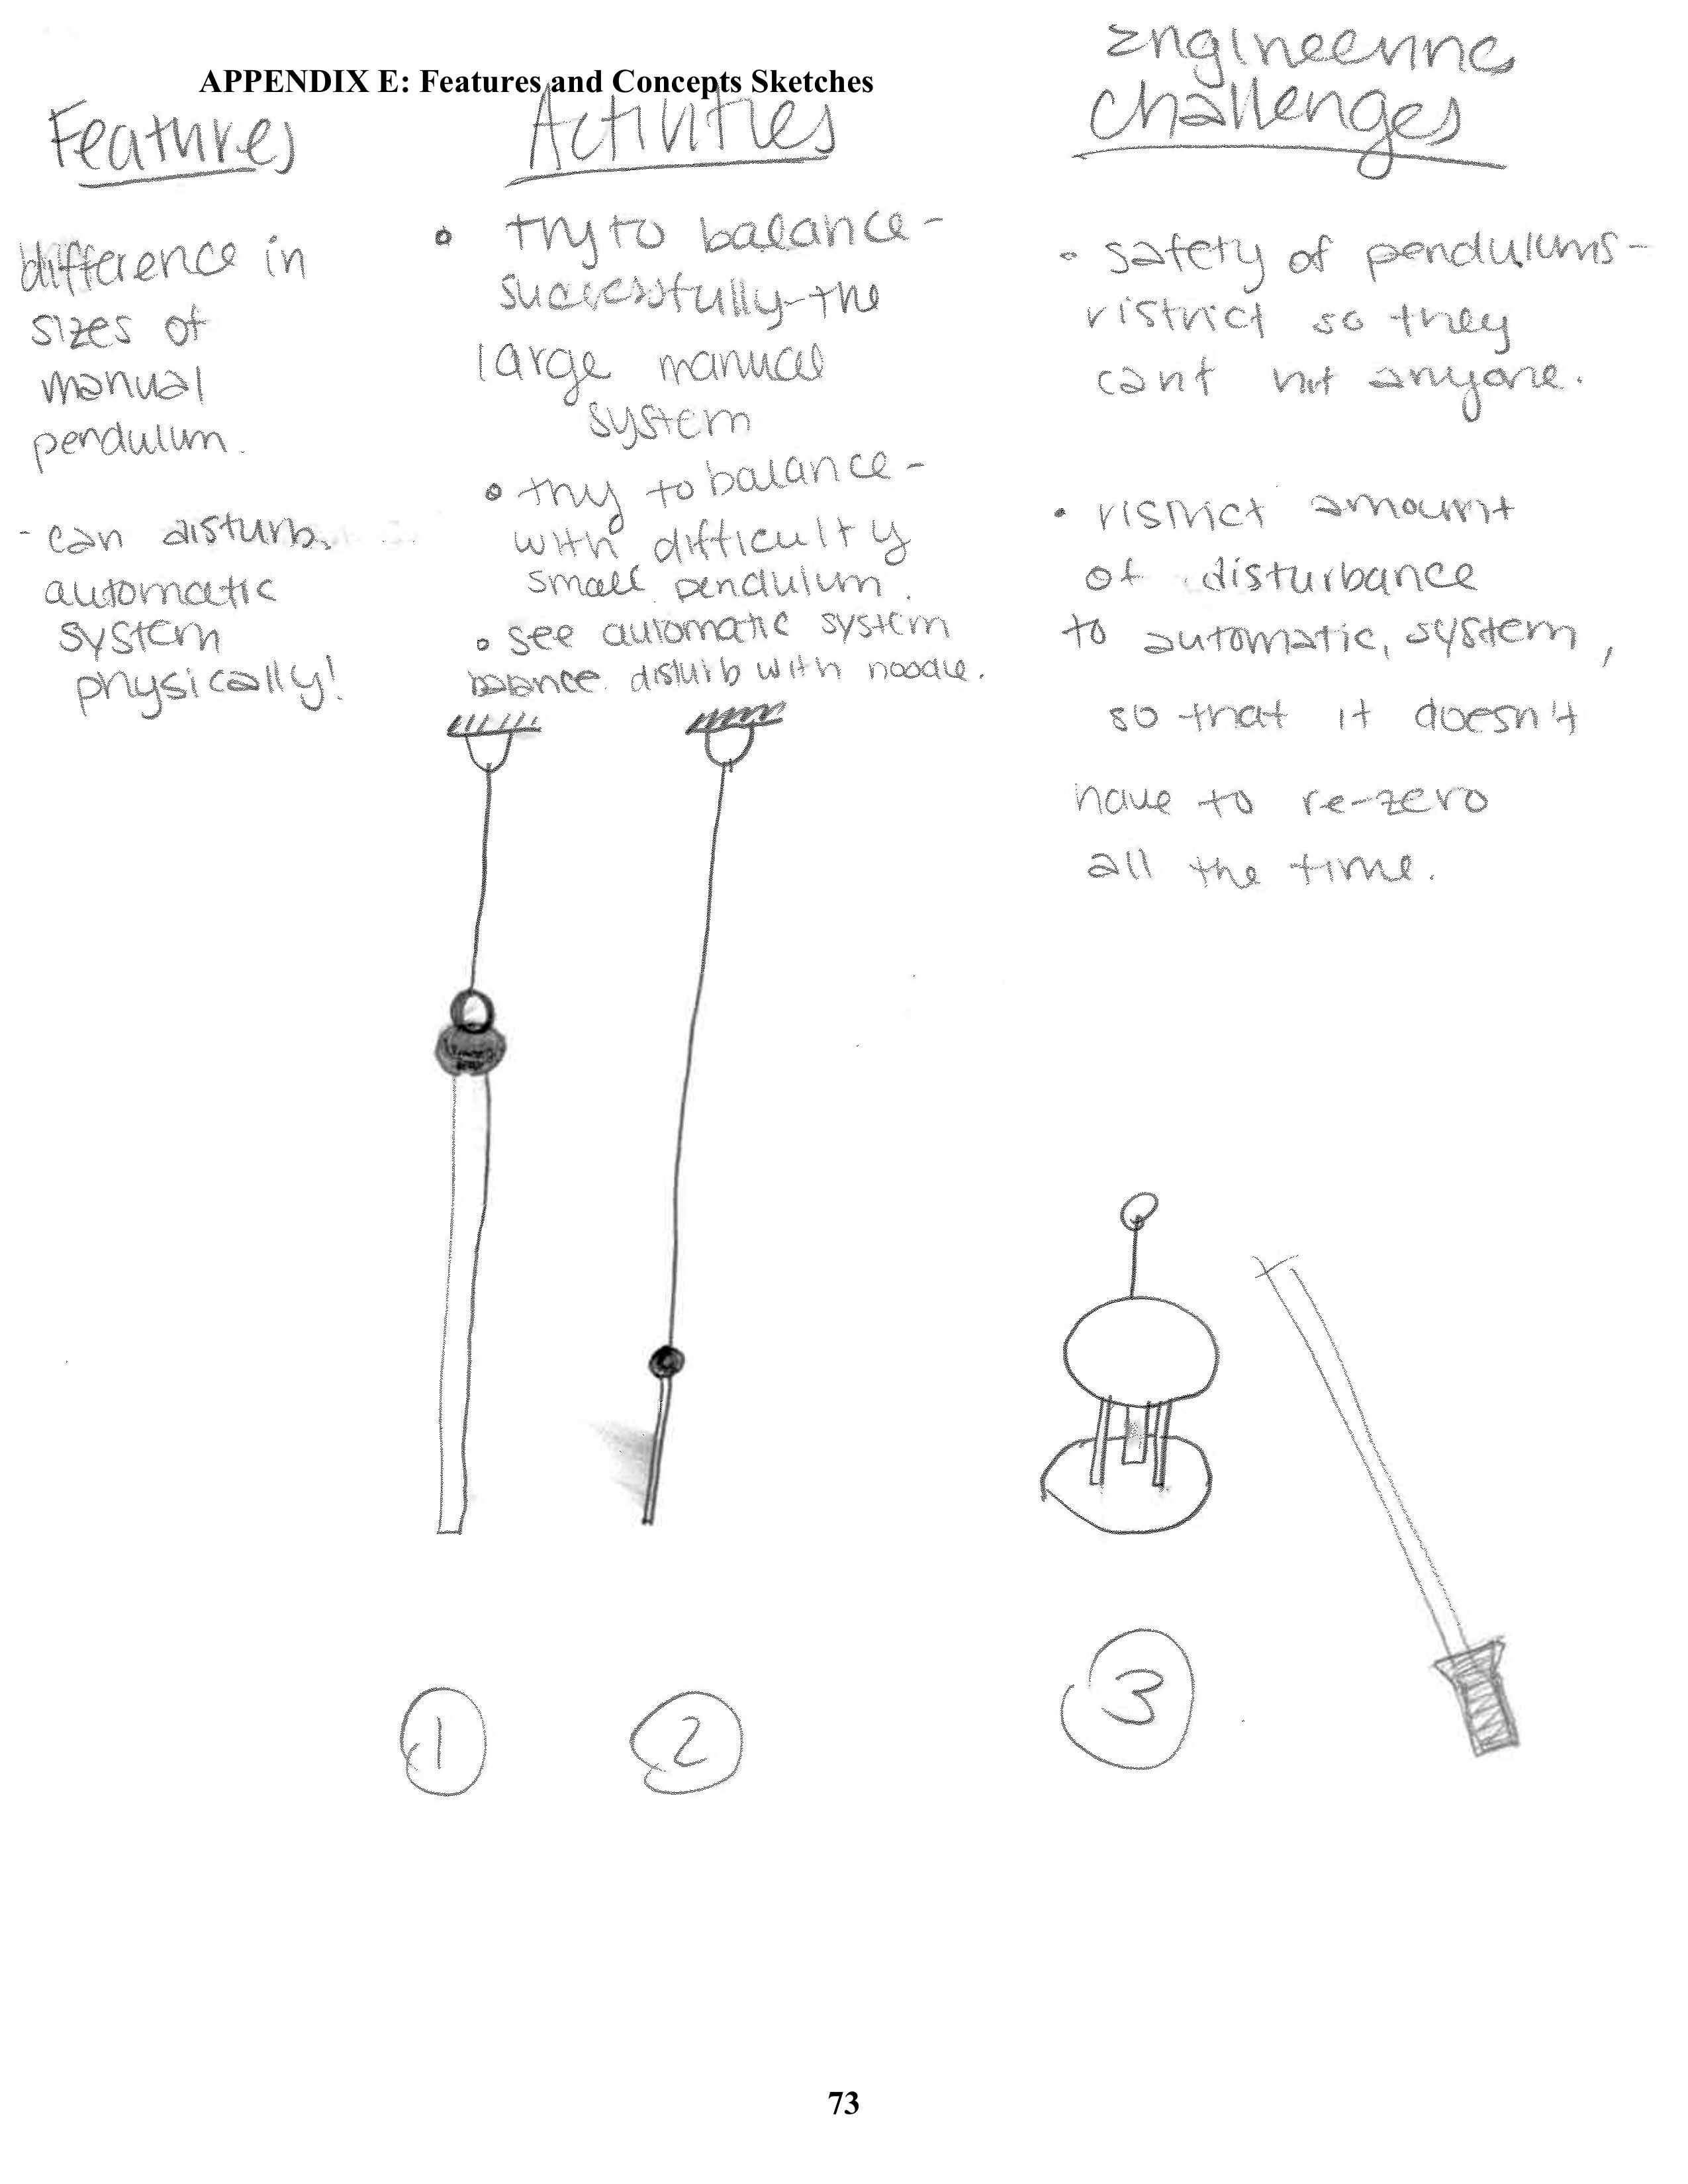 APPENDIX E: Features and Concepts Sketches
Features
difference in
sizes of
manual
pendulum.
- can disturb
automatic
system
physically!
Activities
• try to balance -
successfully - the
large manual
system
• try to balance -
with difficulty
small pendulum.
• see automatic system
balance. disturb with noodle.
Engineering
challenges
• safety of pendulums -
ristrict so they
cant hit anyone.
• ristrict amount
of disturbance
to automatic, system,
so that it doesn't
have to re-zero
all the time.
1
2
3
73